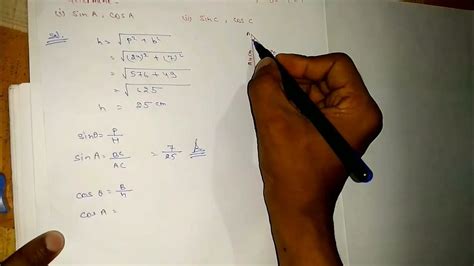 (i) sin A, cos A (ii) sin C, cos C
Sol.
h = √p² + b²
= √(24)² + (7)²
= √576 + 49
= √625
h = 25 cm
sinθ = P/H
sin A = BC/AC = 7/25
cos θ = B/h
cos A =
A